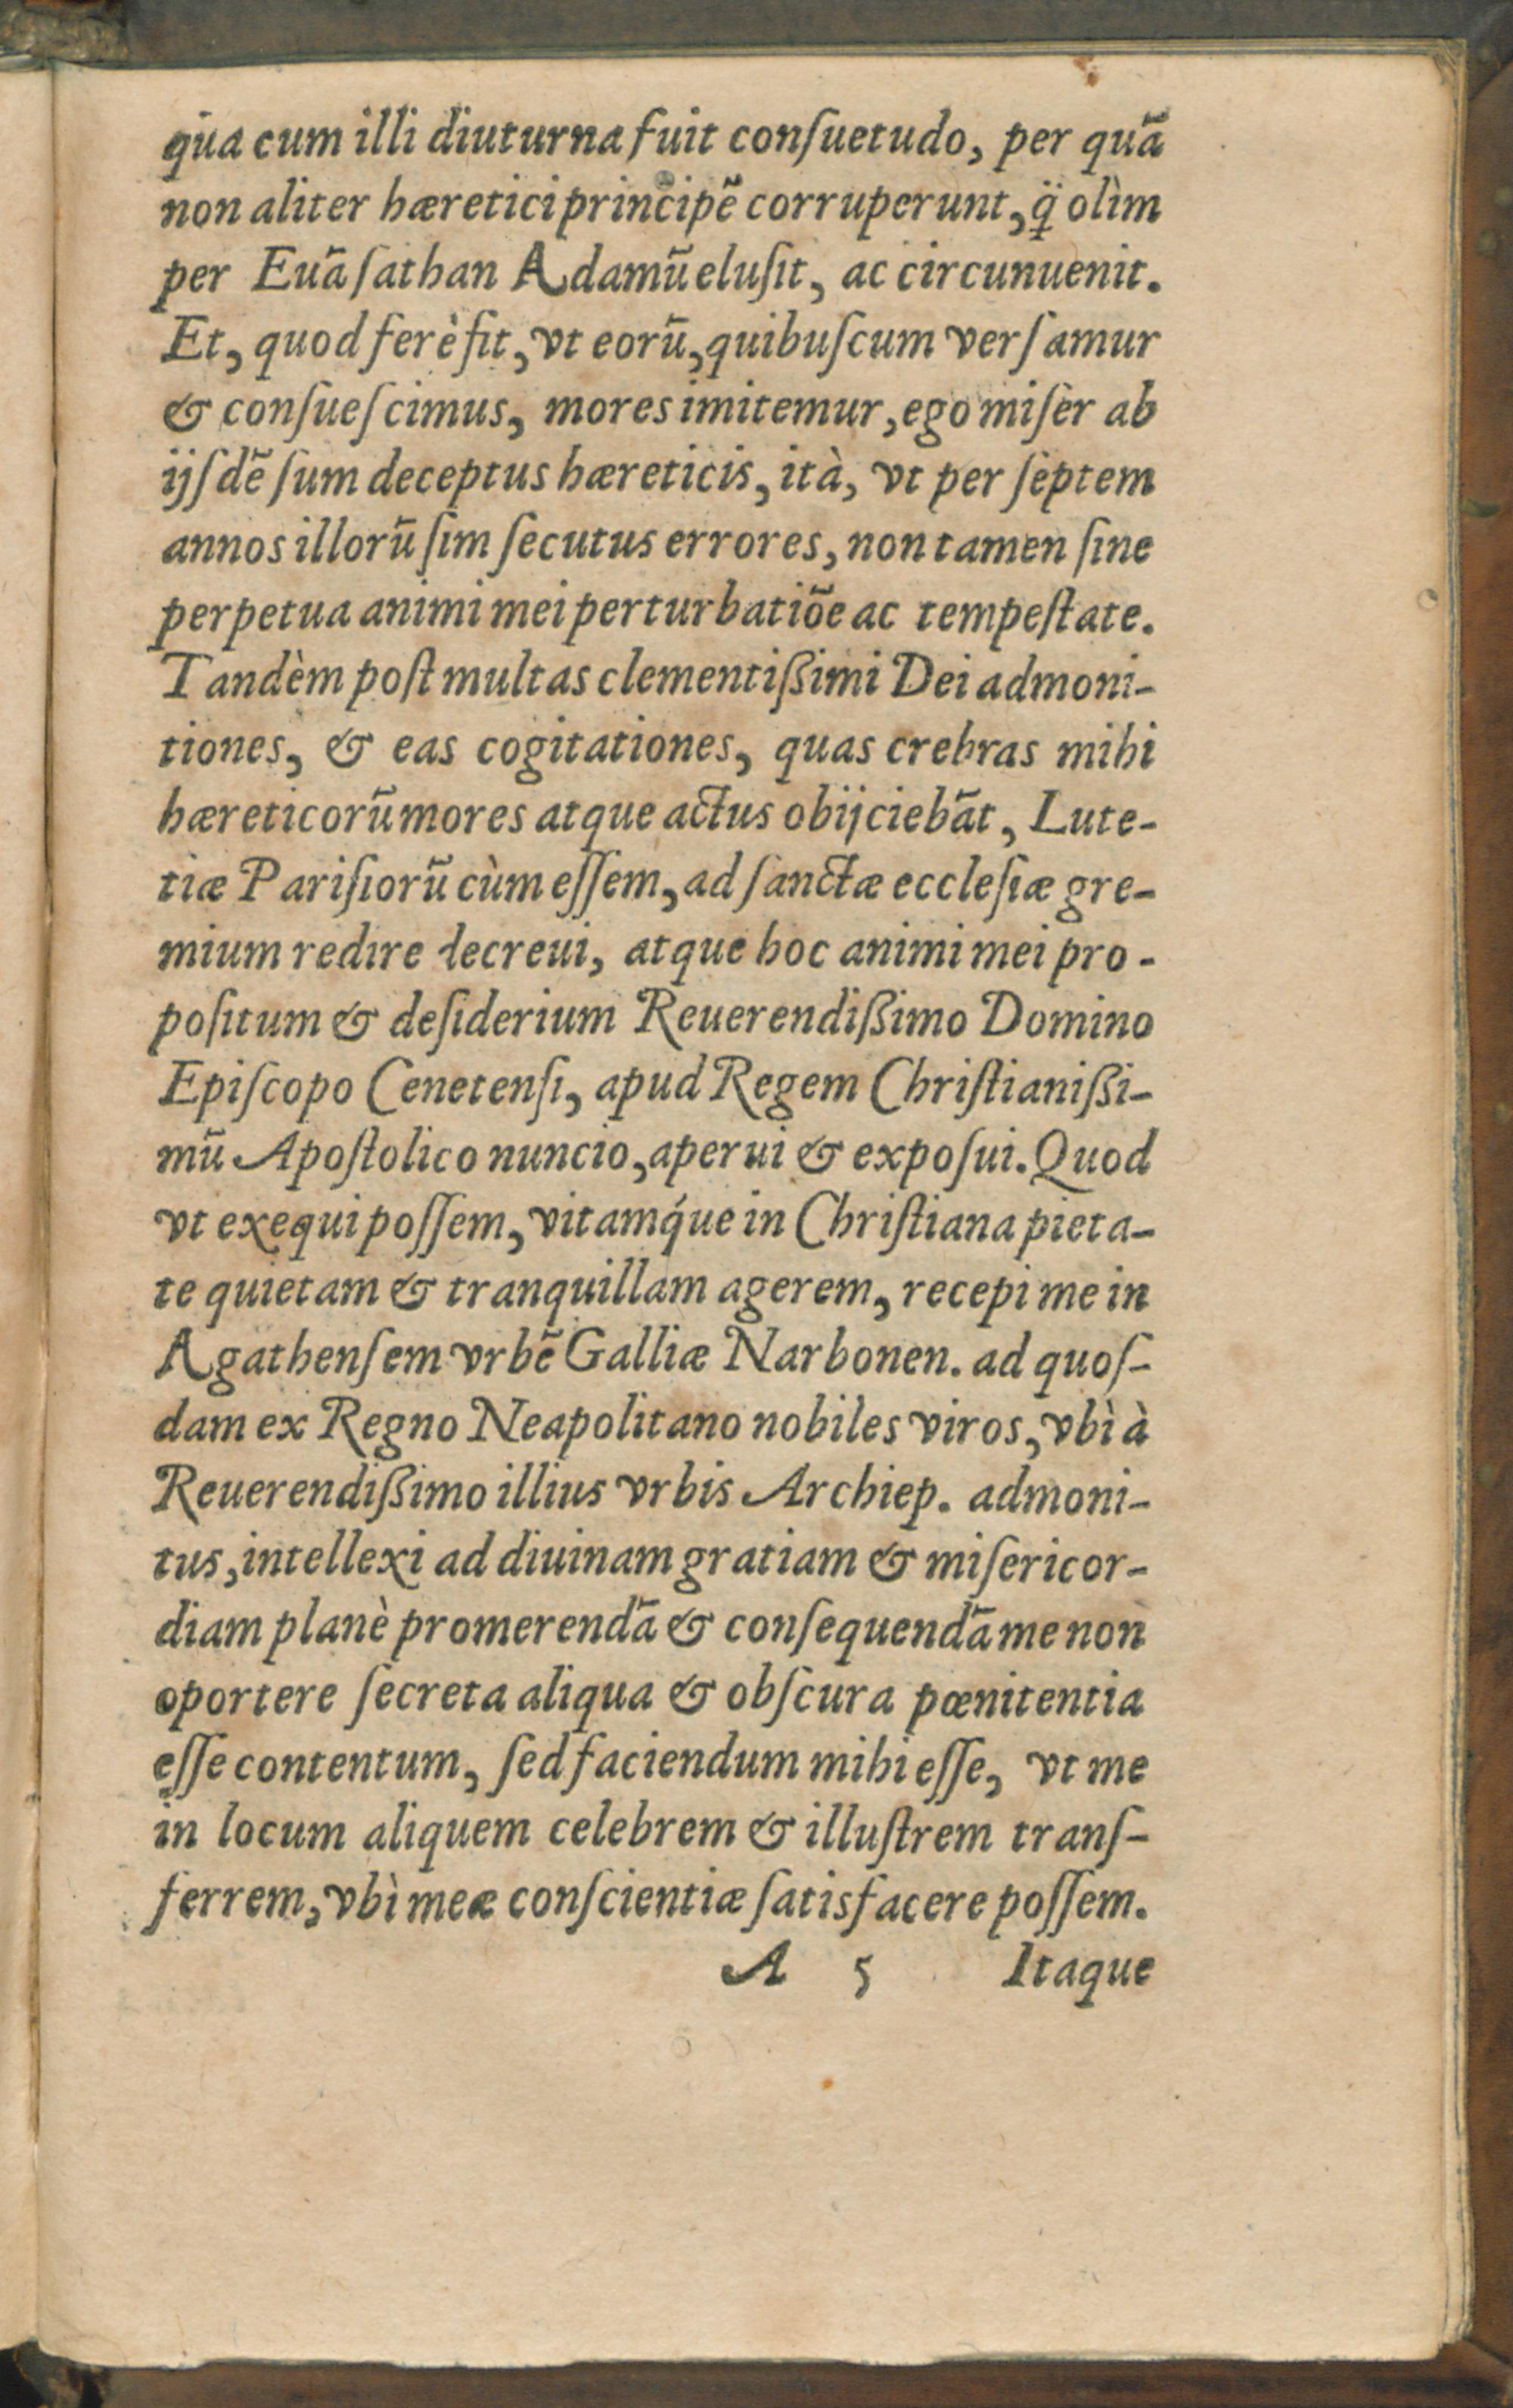 qua cum illi diuturna fuit conſuetudo, per quã
non aliter hæretici principẽ corruperunt, q̃ olìm
per Euã ſathan Adamũ eluſit, ac circunuenit.
Et, quod ferè fit, vt eorũ, quibuſcum verſamur
& conſueſcimus, mores imitemur, ego miſer ab
ijſdẽ ſum deceptus hæreticis, ità, vt per ſeptem
annos illorũ ſim ſecutus errores, non tamen ſine
perpetua animi mei perturbatiõe ac tempeſtate.
Tandèm poſt multas clementißimi Dei admoni-
tiones, & eas cogitationes, quas crebras mihi
hæreticorũ mores atque actus obijciebãt, Lute-
tiæ Pariſiorũ cùm eſſem, ad ſanctæ eccleſiæ gre-
mium redire decreui, atque hoc animi mei pro-
poſitum & deſiderium Reuerendißimo Domino
Epiſcopo Cenetenſi, apud Regem Chriſtianißi-
mũ Apoſtolico nuncio, aperui & expoſui. Quod
vt exequi poſſem, vitamq́ue in Chriſtiana pieta-
te quietam & tranquillam agerem, recepi me in
Agathenſem vrbẽ Galliæ Narbonen. ad quoſ-
dam ex Regno Neapolitano nobiles viros, vbì à
Reuerendißimo illius vrbis Archiep. admoni-
tus, intellexi ad diuinam gratiam & miſericor-
diam planè promerendã & conſequendã me non
oportere ſecreta aliqua & obſcura pœnitentia
eſſe contentum, ſed faciendum mihi eſſe, vt me
in locum aliquem celebrem & illuſtrem tranſ-
ferrem, vbì meæ conſcientiæ ſatisfacere poſſem.
A 5 Itaque